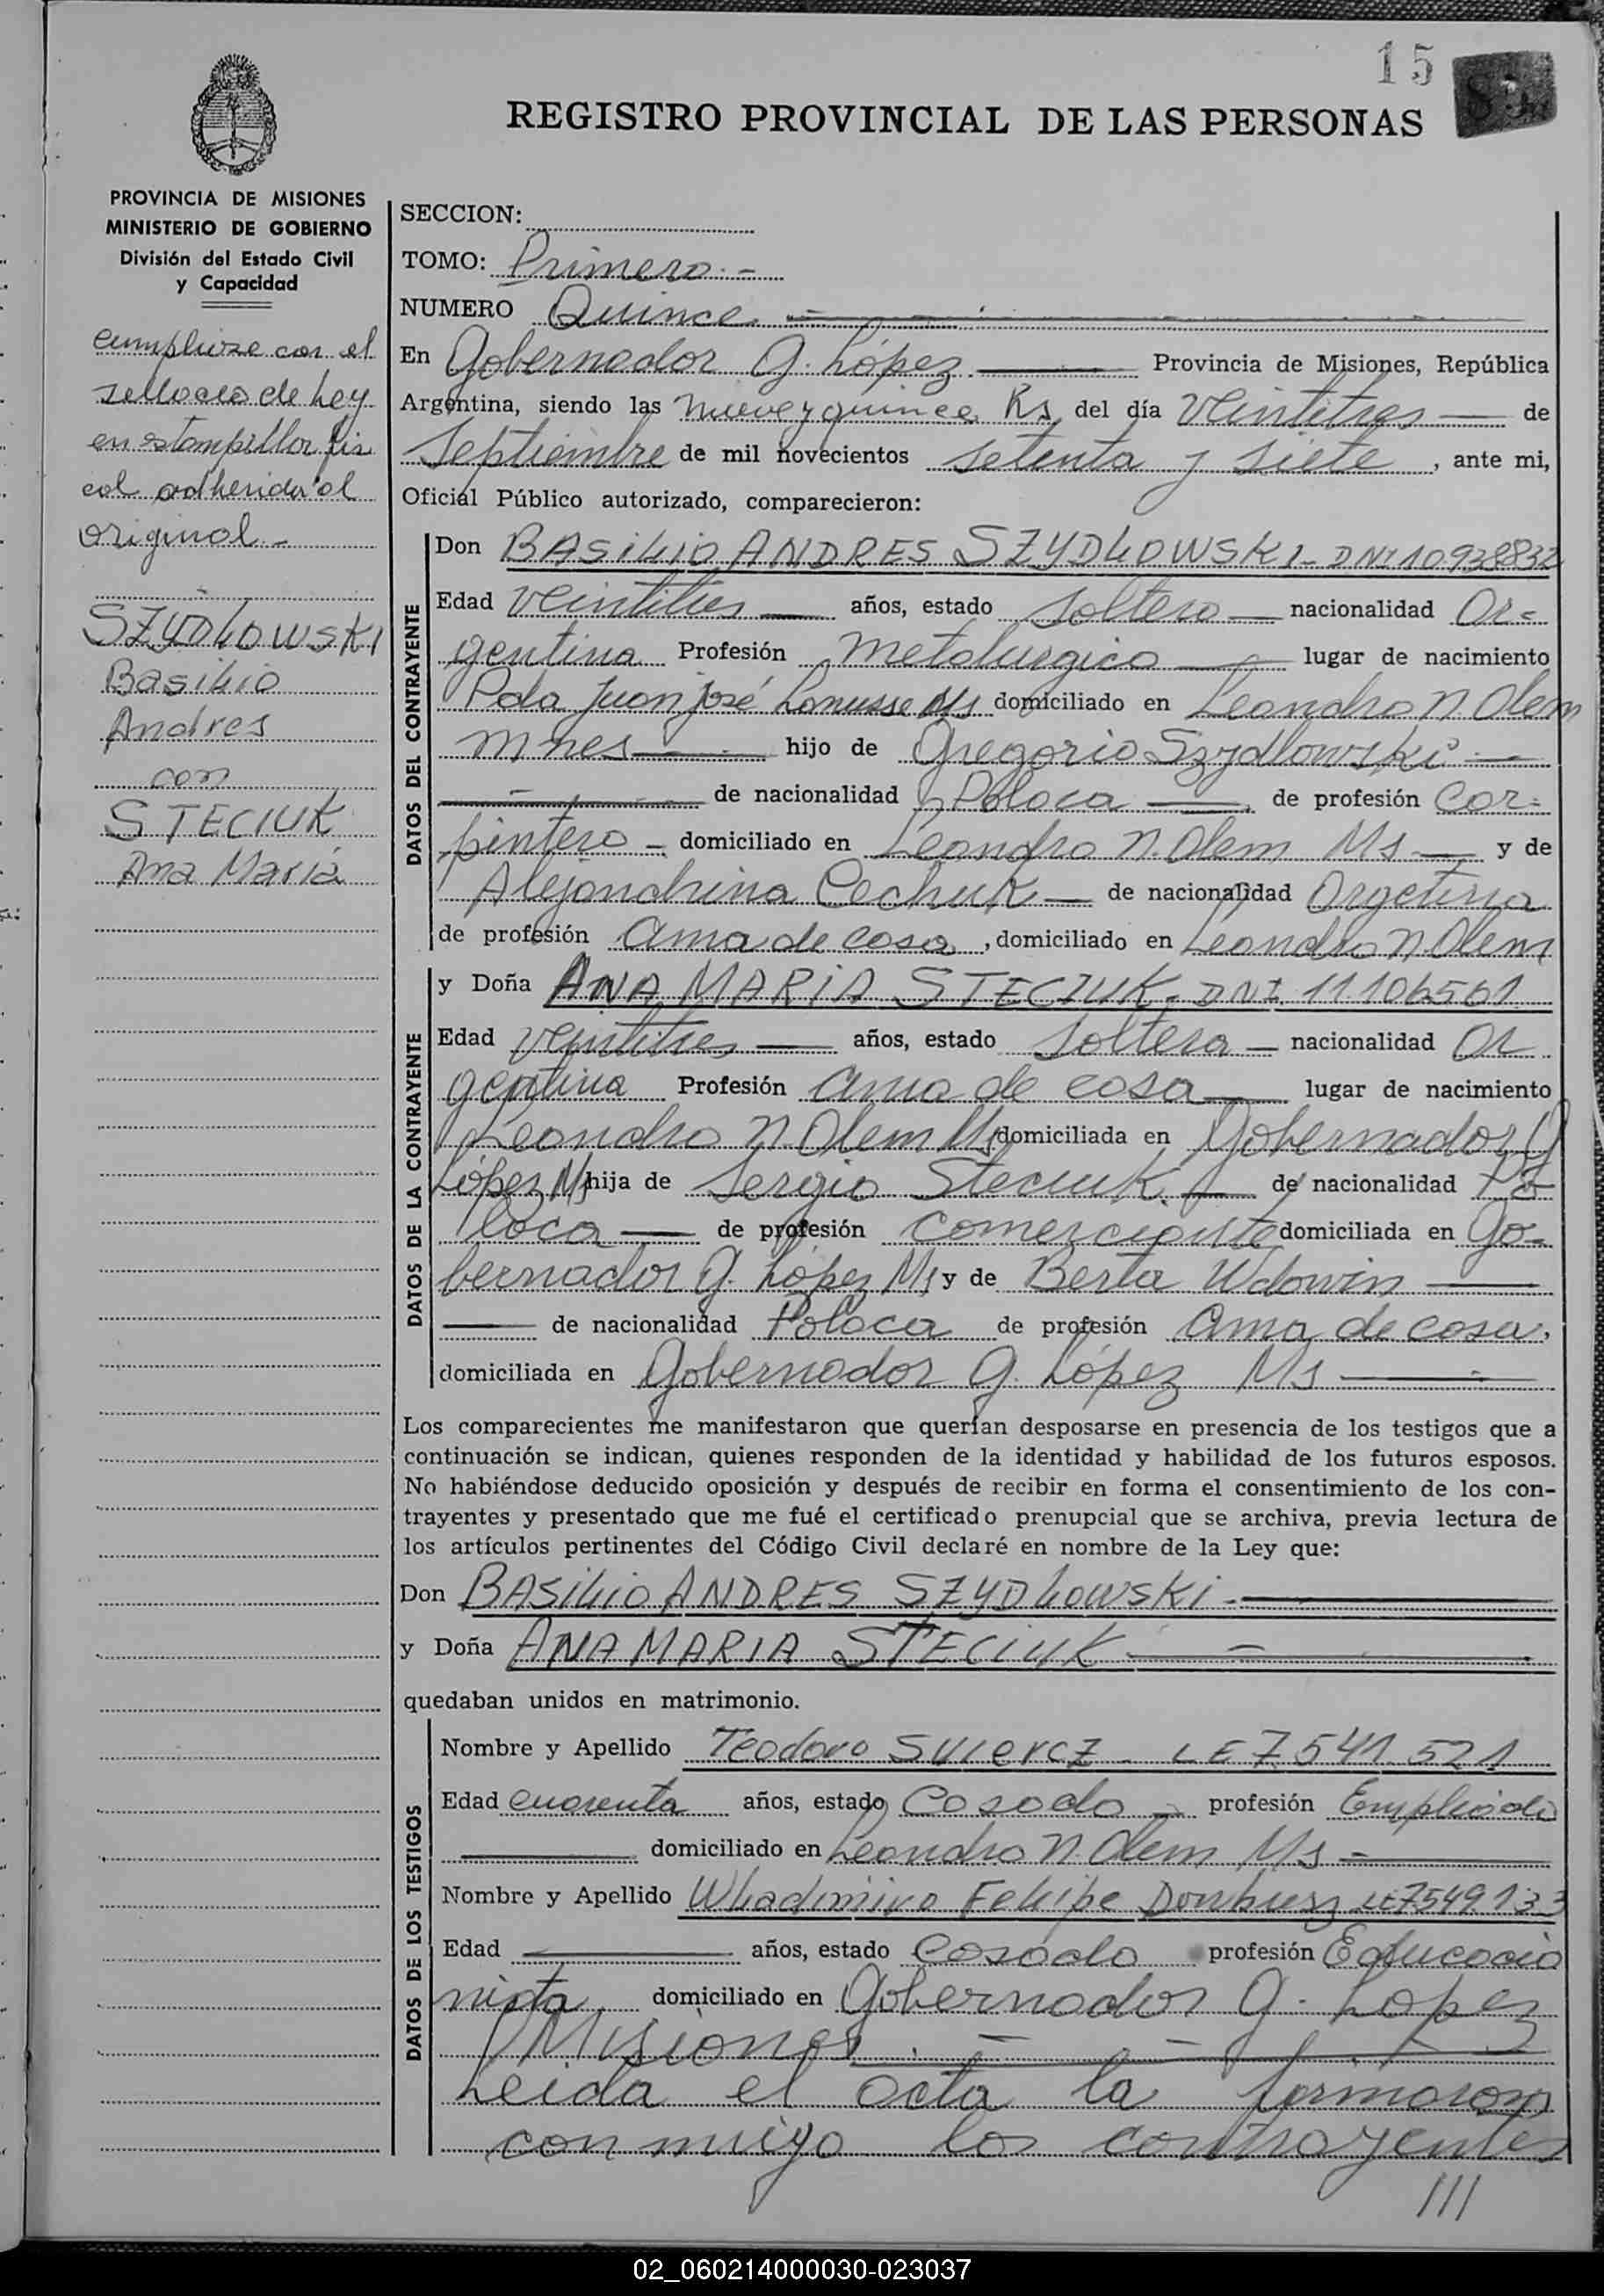 15
REGISTRO PROVINCIAL DE LAS PERSONAS
PROVINCIA DE MISIONES
MINISTERIO DE GOBIERNO
División del Estado Civil
y Capacidad
cumpliose con el
sellado de Ley
en estampillas fis
cal adherida al
original -
SZYDLOWSKI
Basilio
Andres
con
STECIUK
Ana María
SECCION:
TOMO: Primero. -
NUMERO Quince
En Gobernador G. López. Provincia de Misiones, República
Argentina, siendo las nueve y quince Hs del día veintitres de
Septiembre de mil novecientos setenta y siete, ante mi,
Oficial Público autorizado, comparecieron:
DATOS DEL CONTRAYENTE
Don BASILIO ANDRES SZYDLOWSKI - DNI 10.938832
Edad veintitres años, estado soltero nacionalidad Ar-
gentina Profesión metalurgico lugar de nacimiento
Pdo Juan José Lanusse Ms domiciliado en Leandro N. Alem
mnes hijo de Gregorio Szydlowski -
de nacionalidad Polaca de profesión Car-
pintero - domiciliado en Leandro N. Alem Ms y de
Alejandrina Cechuk de nacionalidad Argetina
de profesión Ama de casa, domiciliado en Leandro N. Alem
DATOS DE LA CONTRAYENTE
y Doña ANA MARIA STECIUK - DNI 11.106561
Edad veintitres años, estado soltera nacionalidad Ar
gentina Profesión ama de casa lugar de nacimiento
Leandro N. Alem Ms domiciliada en Gobernador G
López Ms hija de Sergio Steciuk. de nacionalidad Po
laca de profesión comerciante domiciliada en Go-
bernador G. López Ms y de Berta Wdowin
de nacionalidad Polaca de profesión Ama de casa,
domiciliada en Gobernador G. López Ms
Los comparecientes me manifestaron que querían desposarse en presencia de los testigos que a
continuación se indican, quienes responden de la identidad y habilidad de los futuros esposos.
No habiéndose deducido oposición y después de recibir en forma el consentimiento de los con-
trayentes y presentado que me fué el certificado prenupcial que se archiva, previa lectura de
los artículos pertinentes del Código Civil declaré en nombre de la Ley que:
Don BASILIO ANDRES SZYDLOWSKI -
y Doña ANA MARIA STECIUK
quedaban unidos en matrimonio.
DATOS DE LOS TESTIGOS
Nombre y Apellido Teodoro Swiercz - LE 7.541.521
Edad cuarenta años, estado Casado profesión Empleado
domiciliado en Leandro N. Alem Ms -
Nombre y Apellido Wladimiro Felipe LE 7549133
Edad años, estado Casado profesión Educacio
nista, domiciliado en Gobernador G. Lopez
Misiones.
Leida el acta la firmaron
conmigo los contrayentes
///
02_060214000030-023037